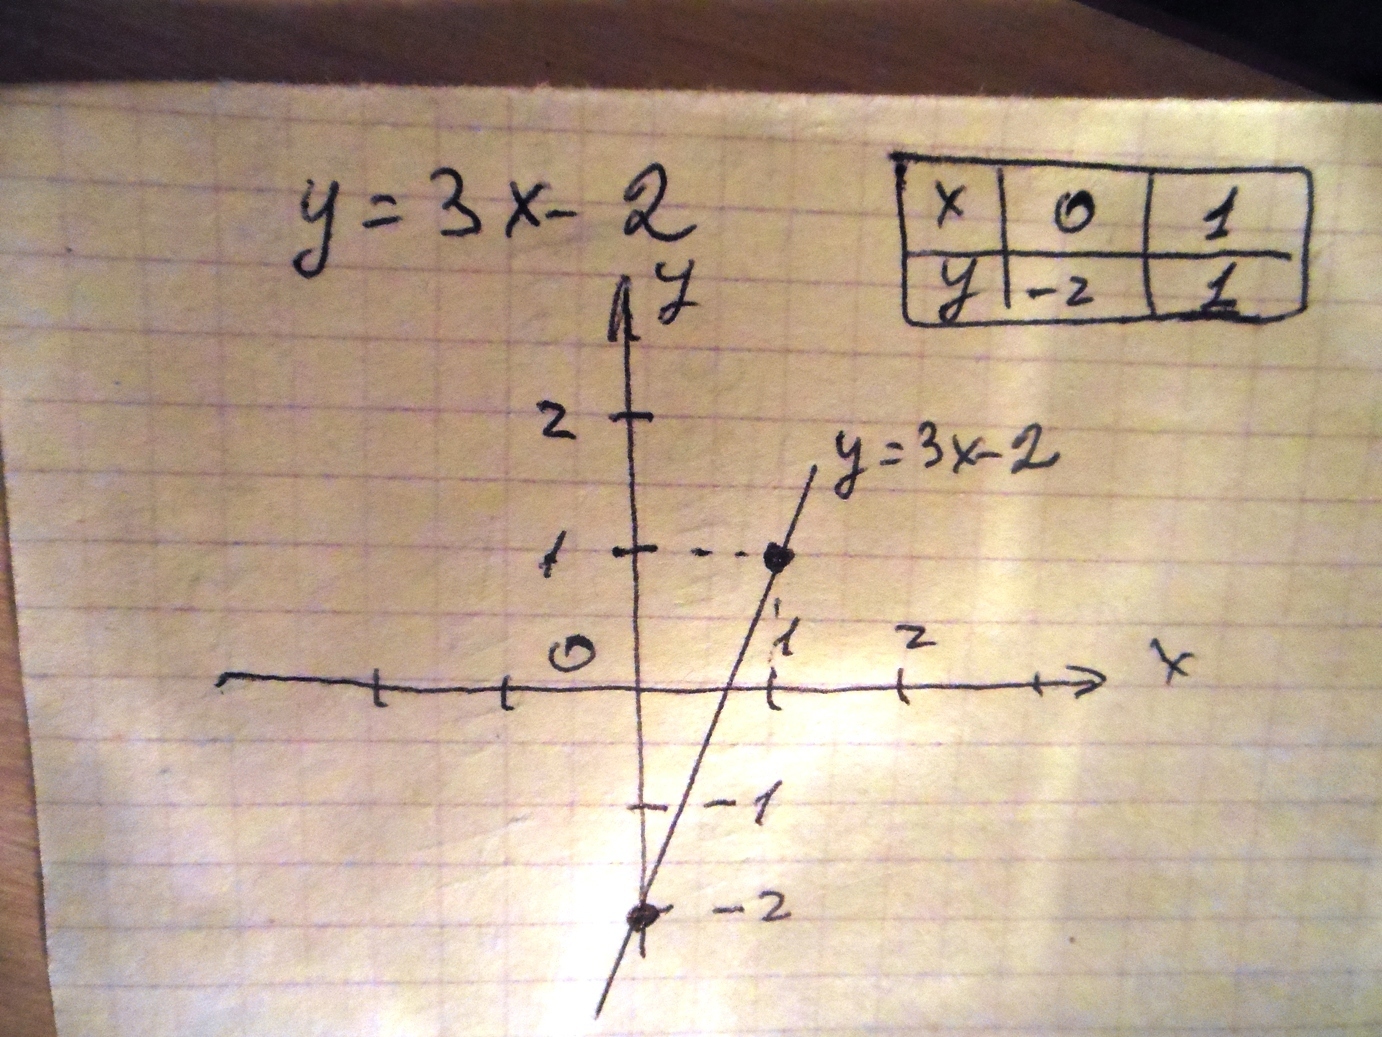 y = 3x - 2
x 0 1
y -2 1
y
2
y = 3x - 2
1
0 1 2 x
-1
-2